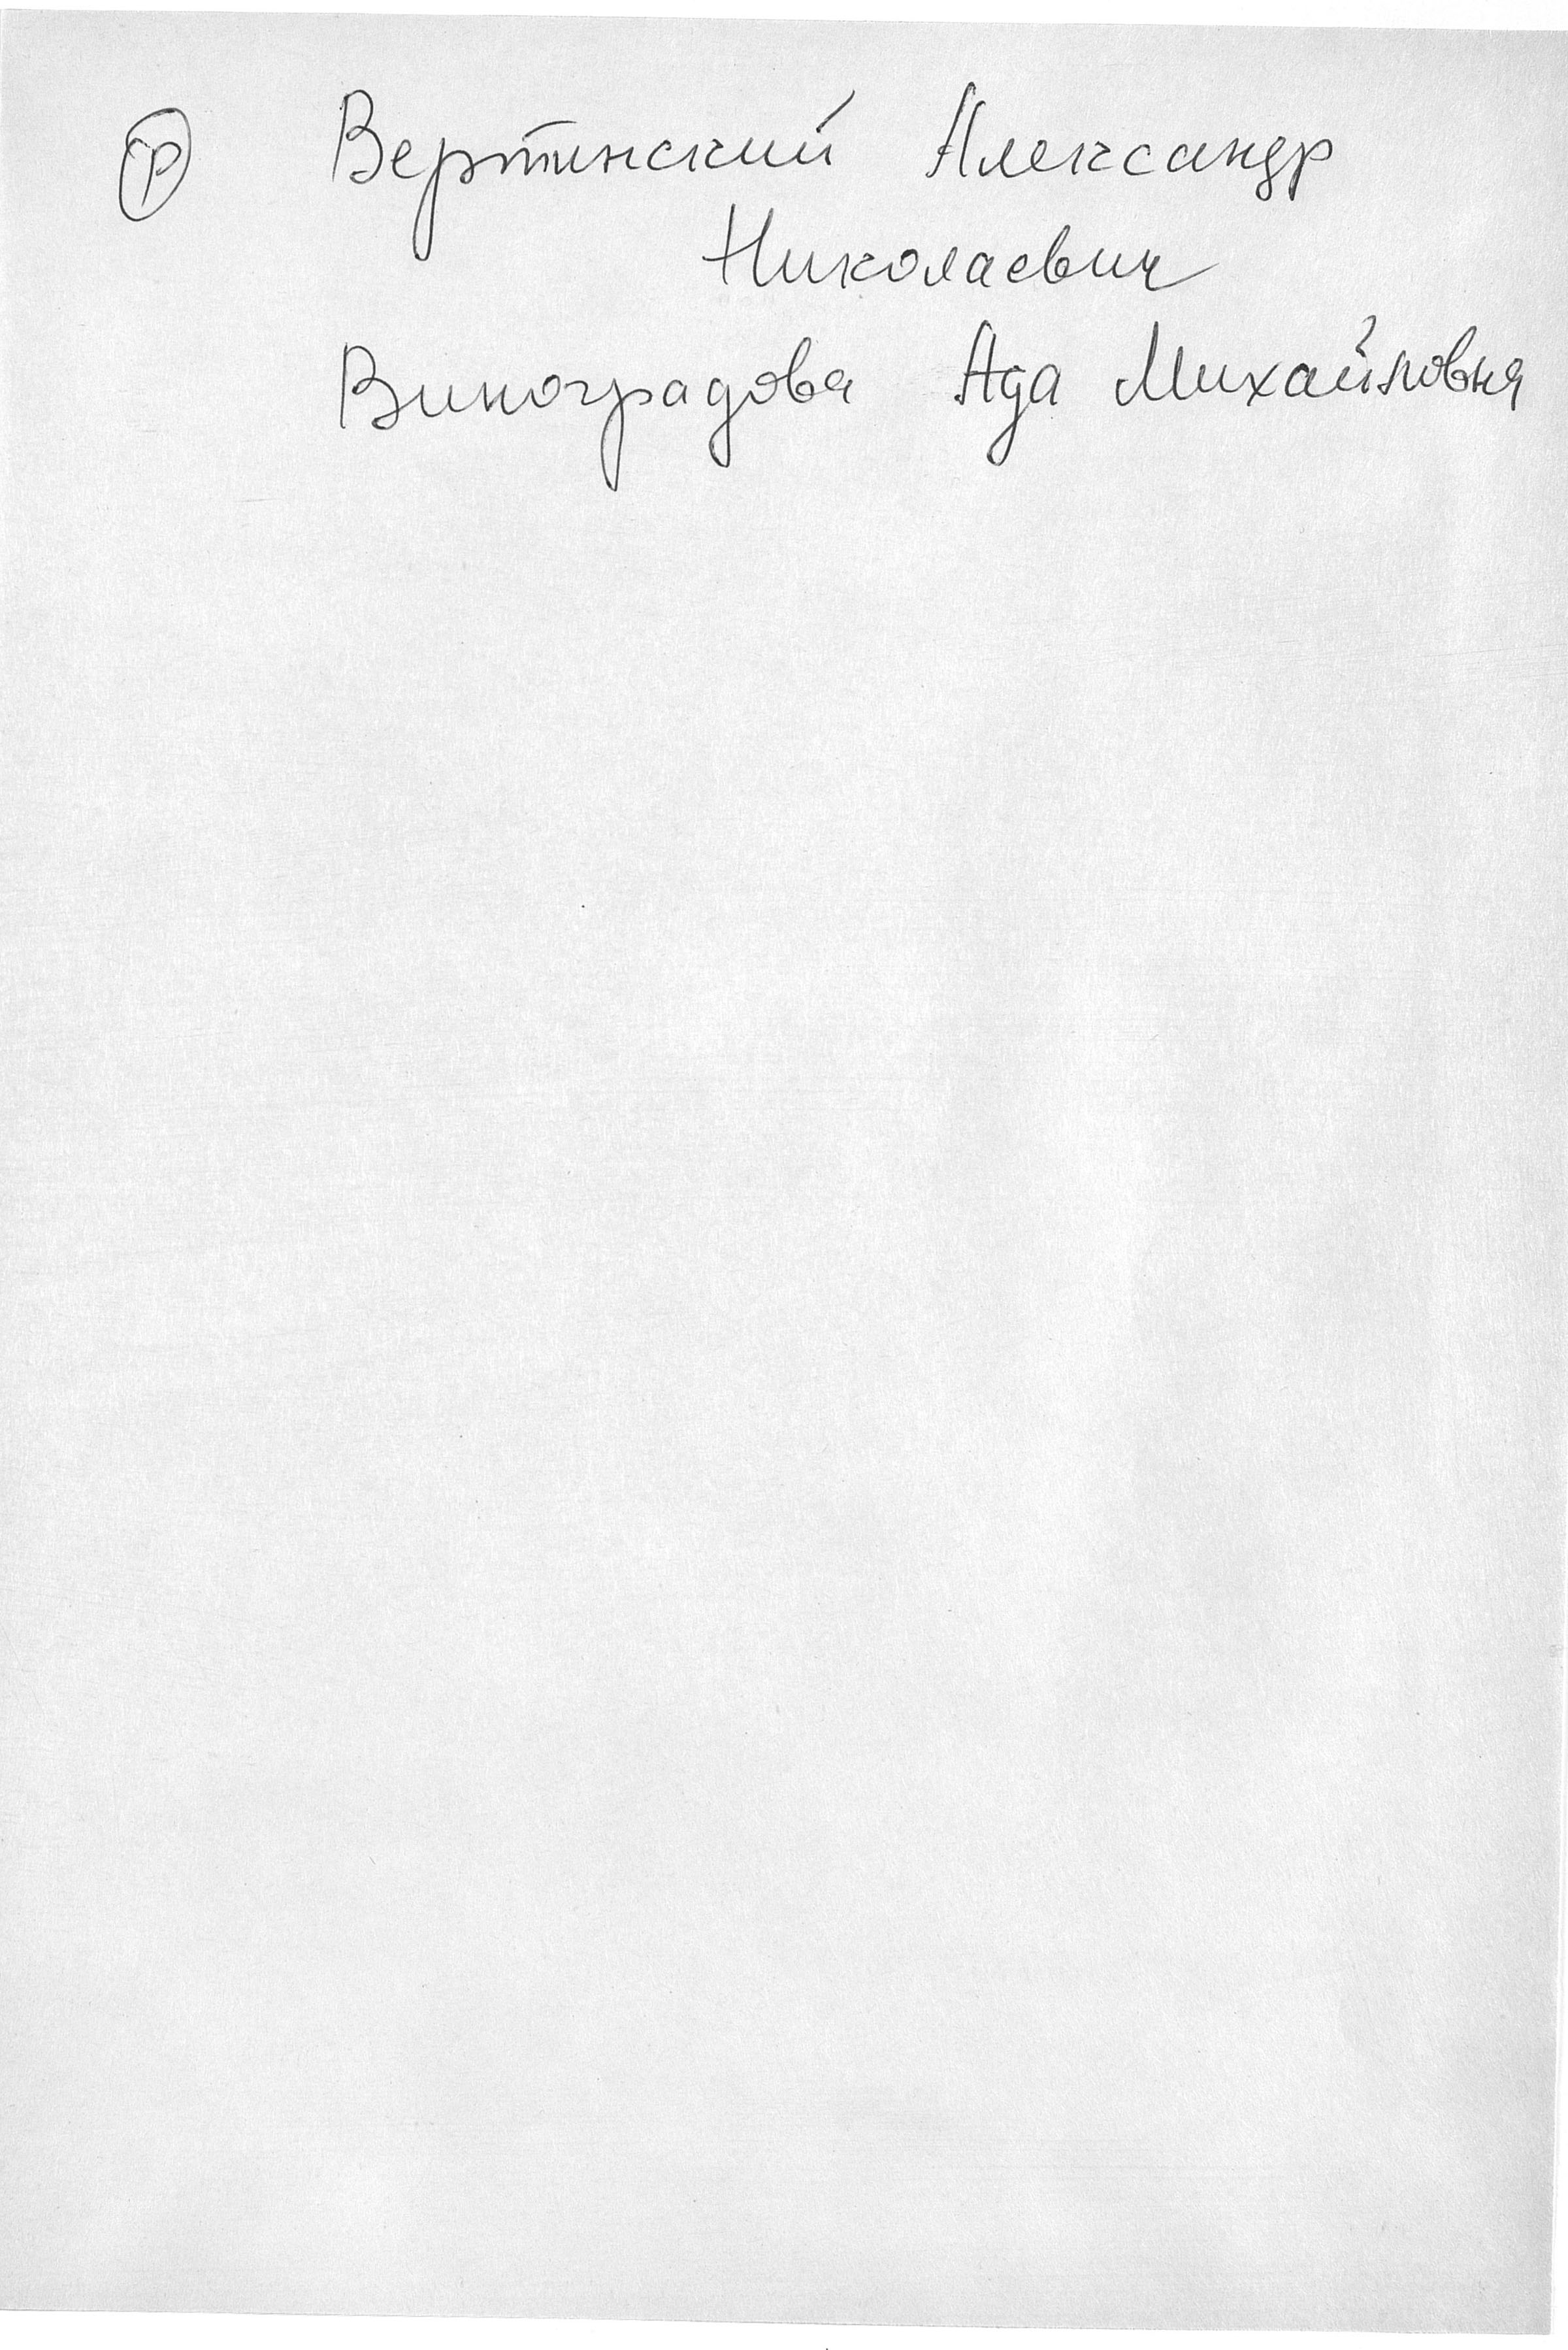 Р Вертинский Александр
Николаевич
Виноградова Ада Михайловна